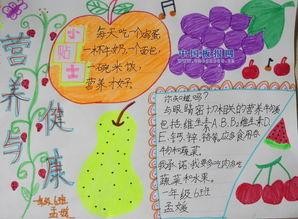 营养与健康
一年级6班
孟媛
小贴士
每天吃一个鸡蛋,
一杯牛奶,一个面包,
一碗米饭,
营养才好。
中国板报网
你知道吗?
与眼睛密切相关的营养物质
包括:维生素A、B、B2、维生素C、
E、钙、锌、铬等,应多食用谷
物和蔬菜。
我承诺:我要多吃肉,多吃
蔬菜和水果。
一年级6班
孟媛